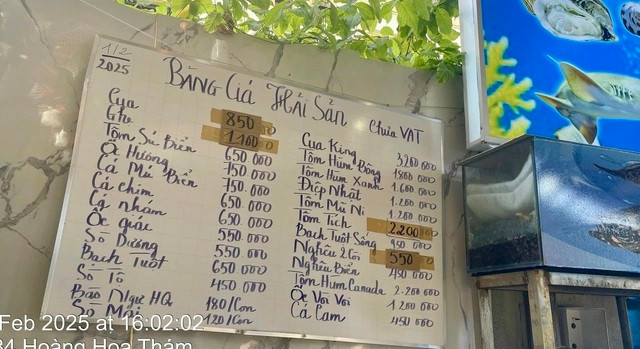 1/2
2025
BẢNG Giá HẢI SẢN
Chưa VAT
Cua 850
Ghẹ 1.100
Tôm Sú Biển 650 000
Ốc Hương 750 000
Cá Mú Biển 750.000
Cá chim 650 000
Cá nhám 650 000
Ốc giác 550.000
Sò Dương 550 000
Bạch Tuột 650 000
Sò Tô 450 000
Bào Ngư HQ 180/Con
120/Con
Cua King 3200 000
Tôm Hùm Bông 1800 000
Tôm Hùm Xanh 1.600 000
Điệp Nhật 1.200 000
Tôm Mũ Ni 1.200 000
Tôm Tích 2.200
Bạch Tuột Sống 950 000
Nghêu 2 Cồi 550
Nghêu Biển 450 000
Tôm Hùm Canada 2.200 000
Ốc Vòi Voi 1200 000
Cá Cam 450 000
Feb 2025 at 16:02:02
34 Hoàng Hoa Thám